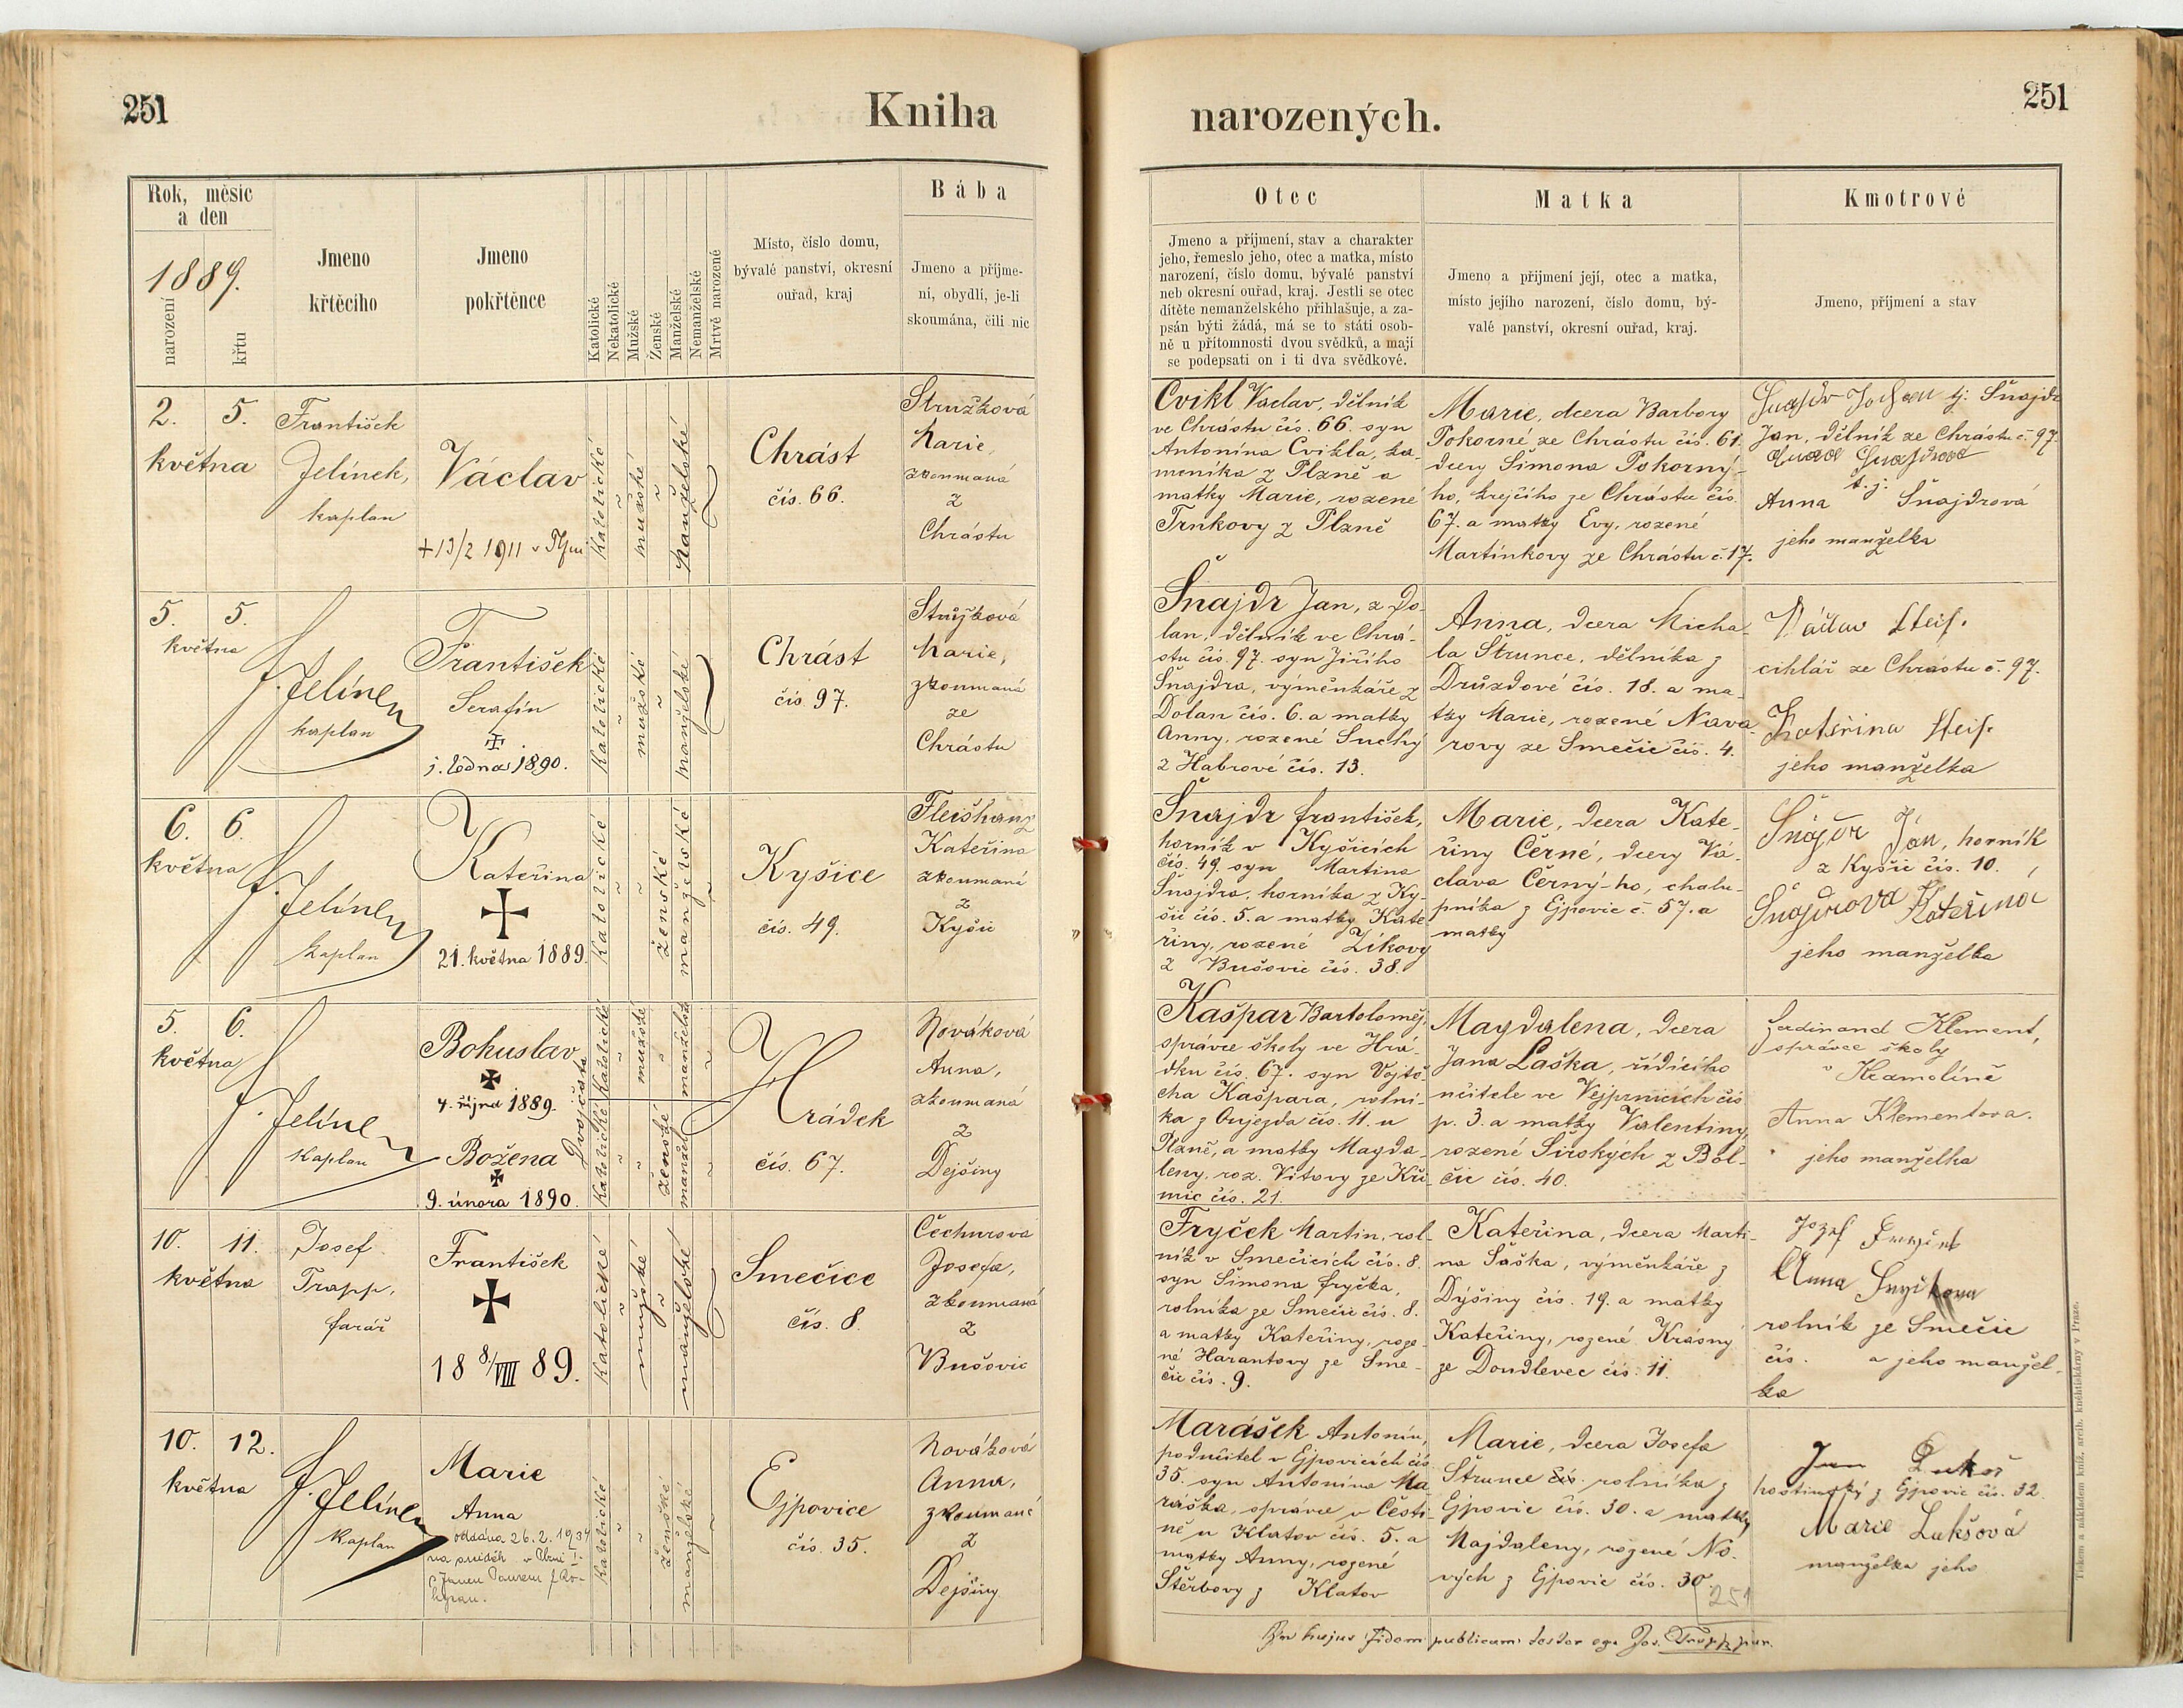 251
Kniha
narozených.
251
Rok, měsíc
a den
1889.
narození
křtu
Jmeno
křtěcího
Jmeno
pokřtěnce
Katolické
Nekatolické
Mužské
Ženské
Manželské
Nemanželské
Mrtvě narozené
Místo, číslo domu,
bývalé panství, okresní
ouřad, kraj
Bába
Jmeno a příjme-
ní, obydlí, je-li
skoumána, čili nic
Otec
Jmeno a příjmení, stav a charakter
jeho, řemeslo jeho, otec a matka, místo
narození, číslo domu, bývalé panství
neb okresní ouřad, kraj. Jestli se otec
dítěte nemanželského přihlašuje, a za-
psán býti žádá, má se to státi osob-
ně u přítomnosti dvou svědků, a mají
se podepsati on i ti dva svědkové.
Matka
Jmeno a přijmení její, otec a matka,
místo jejího narození, číslo domu, bý-
valé panství, okresní ouřad, kraj.
Kmotrové
Jmeno, příjmení a stav
2. 5.
května
František
Jelínek,
kaplan
Václav
+13/2 1911 v Plzni
Katolické
mužské
manželské
Chrást
čís. 66.
Stružková
Marie,
zkoumaná
z
Chrástu
Cvikl Václav, dělník
ve Chrástu čís. 66. syn
Antonína Cvikla, ka-
meníka z Plzně a
matky Marie, rozené
Trnkovy z Plzně
Marie, dcera Barbory
Pokorné ze Chrástu čís. 61.
dcery Šimona Pokorný-
ho, krejčího ze Chrástu čís.
67. a matky Evy, rozené
Martínkovy ze Chrástu č. 17.
tj: Šnajdr
Jan, dělník ze Chrástu č. 97.
t. j.
Anna Šnajdrová
jeho manželka
5. 5.
května
F. Jelínek
kaplan
František
Serafín
1. ledna 1890.
Katolické
mužské
manželské
Chrást
čís 97.
Stružková
Marie,
zkoumaná
ze
Chrástu
Šnajdr Jan, z Do-
lan, dělník ve Chrá-
stu čís. 97. syn Jiřího
Šnajdra, výměnkáře z
Dolan čís. 6. a matky
Anny, rozené Suchý
z Habrové čís. 13.
Anna, dcera Micha-
la Štrunce, dělníka z
Druzdové čís. 18. a ma-
tky Marie, rozené Nava-
rovy ze Smečic čís. 4.
Václav
cihlář ze Chrástu č. 97.
Kateřina
jeho manželka
6. 6.
května
F. Jelínek
kaplan
Kateřina
21. května 1889.
Katolické
ženské
manželské
Kyšice
čís. 49.
Fleišhanz
Kateřina
zkoumaná
z
Kyšic
Šnajdr František,
horník v Kyšicích
čís. 49. syn Martina
Šnajdra, horníka z Ky-
šic čís. 5. a matky Kate-
řiny, rozené Zíkovy
z Bušovic čís. 38.
Marie, dcera Kate-
řiny Černé, dcery Vá-
clava Černý-ho, chalu-
pníka z Ejpovic č. 57. a
matky
Šnajdr Jan, horník
z Kyšic čís. 10.
Šnajdrová Kateřina
jeho manželka
5. 6.
května
F. Jelínek
kaplan
Bohuslav
4. října 1889.
Božena
9. února 1890.
Dvojčata
Katolické
Katolické
mužské
ženské
manželské
manžel.
Hrádek
čís. 67.
Nováková
Anna,
zkoumaná
z
Dejšiny
Kašpar Bartoloměj,
správce školy ve Hrá-
dku čís. 67. syn Vojtě-
cha Kašpara, rolní-
ka z Oujezda čís. 11. u
Plzně, a matky Magda-
leny, roz. Vítovy ze Kři-
mic čís. 21.
Magdalena, dcera
Jana Laška, řídícího
učitele ve Vejprnicích čís
p. 3. a matky Valentiny,
rozené Širokých z Bol-
čic čís. 40.
Ferdinand Klement,
správce školy
v Kramolíně
Anna Klementova.
jeho manželka
10. 11.
května
Josef
Trapp,
farář
František
18 8/VIII 89.
Katolické
mužské
manželské
Smečice
čís. 8.
Čechurová
Josefa,
zkoumaná
z
Bušovic
Fryček Martin, rol-
ník v Smečicích čís. 8.
syn Šimona Fryčka,
rolníka ze Smečic čís. 8.
a matky Kateřiny, roze-
né Harantovy ze Sme-
čic čís. 9.
Kateřina, dcera Marti-
na Saška, výměnkáře z
Dýšiny čís. 19. a matky
Kateřiny, rozené Krásný
ze Doudlevec čís. 11.
Jozef Fryček
Anna Fryčkova
rolník ze Smečic
čís. a jeho manžel-
ka
10. 12.
května
F. Jelínek
kaplan
Marie
Anna
oddána 26. 2. 1934
Katolické
ženské
manželské
Ejpovice
čís. 35.
Nováková
Anna,
zkoumaná
z
Dejšiny
Marášek Antonín,
podučitel v Ejpovicích čís
35. syn Antonína Ma-
raška, správce v Čésti-
ně u Klatov čís. 5. a
matky Anny, rozené
Štěrbovy z Klatov
Marie, dcera Josefa
Štrunce čís. rolníka z
Ejpovic čís. 30. a matky
Majdaleny, rozené No-
vých z Ejpovic čís. 30.
251
Jan Lukeš
hostinský z Ejpovic čís. 32.
Marie Lukšová
manželka jeho
In hujus fidem publicam testor ego Jos. Trapp
Tiskem a nákladem kníž. arcib. knihtiskárny v Praze.